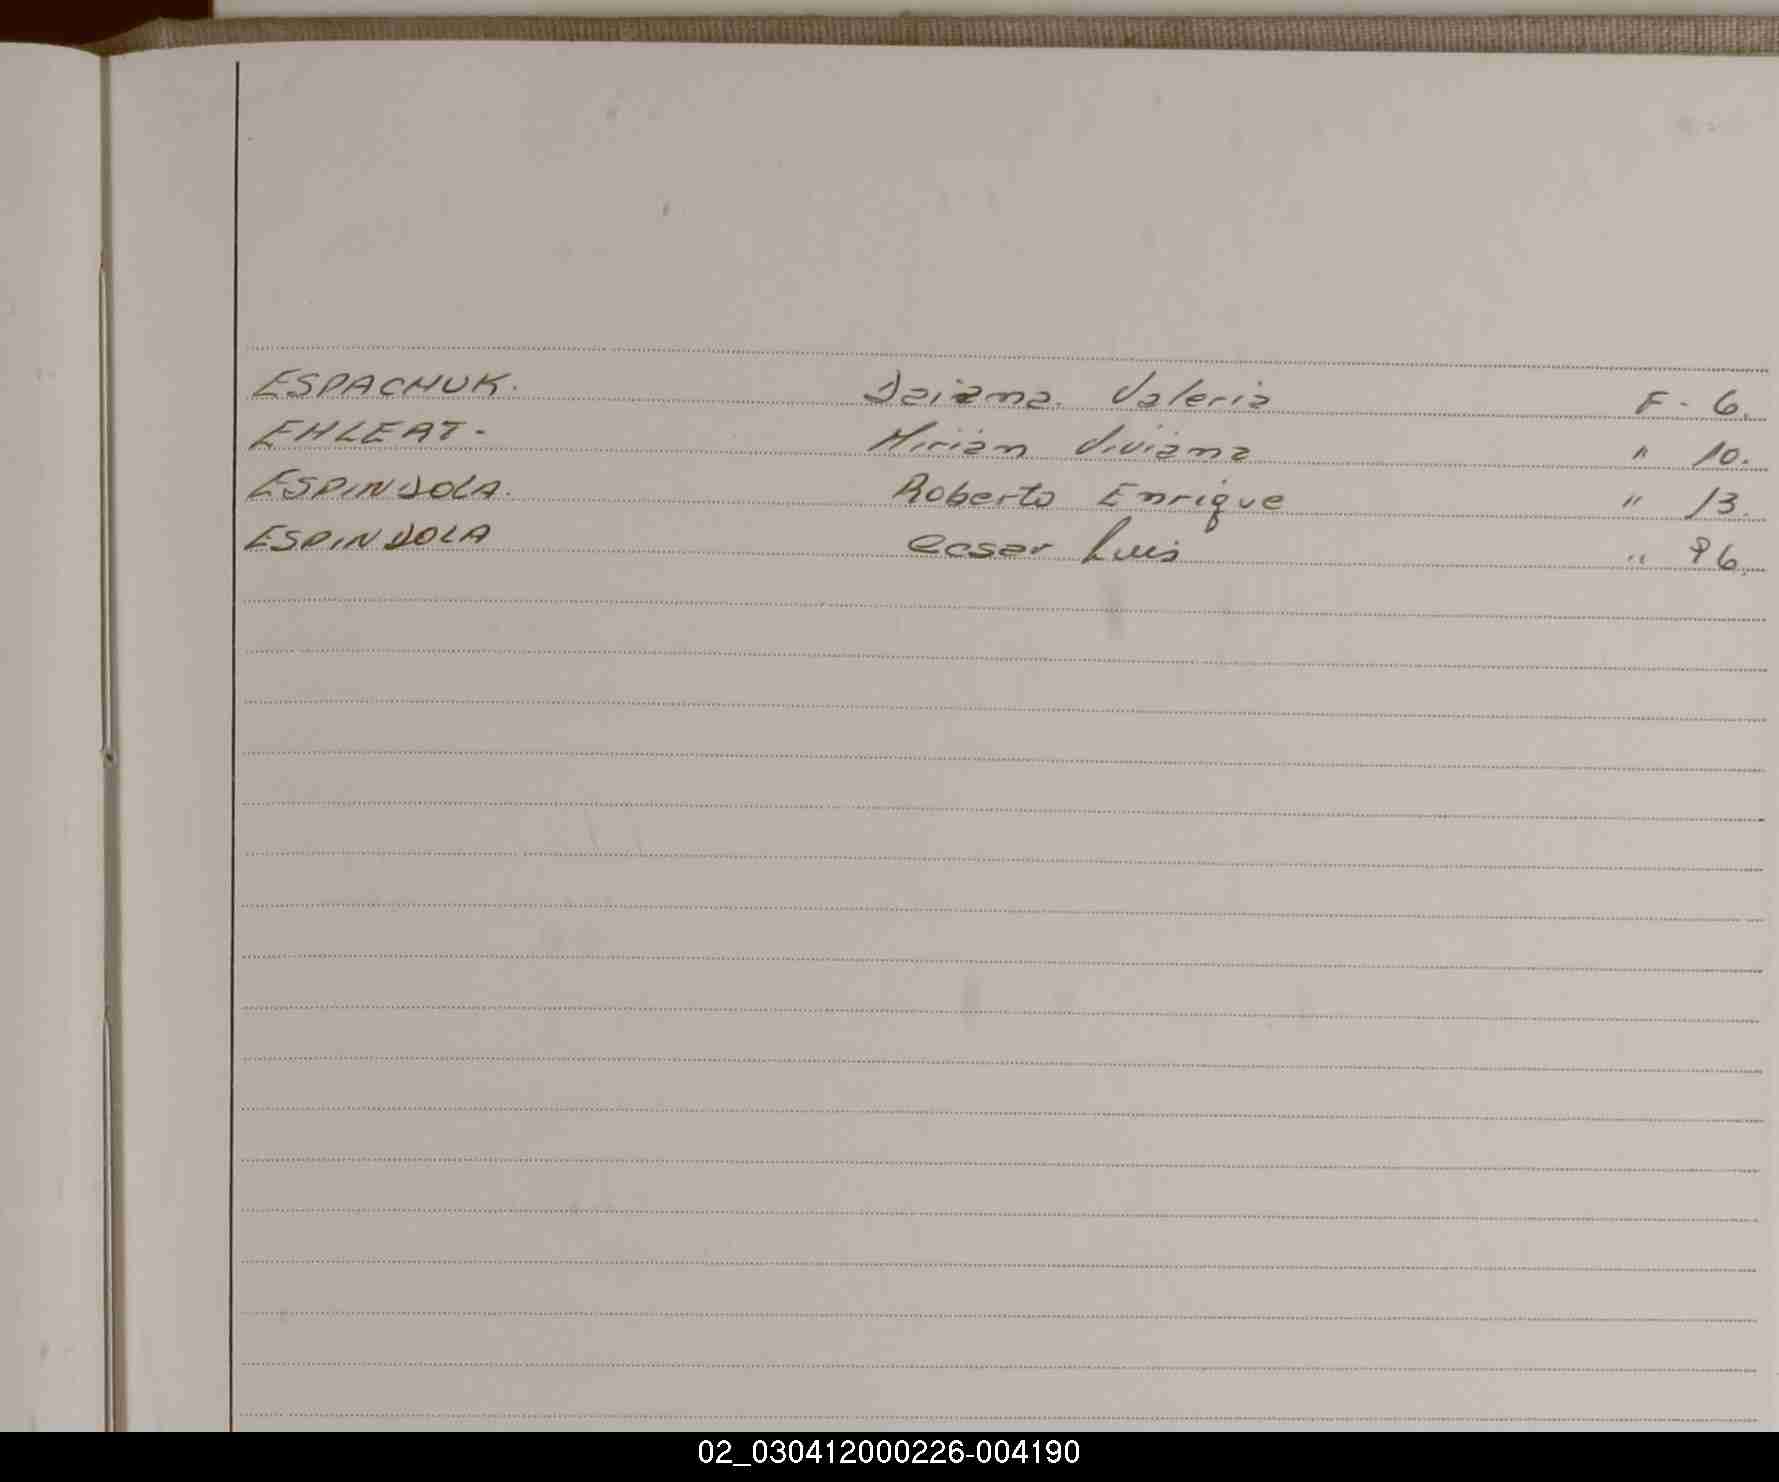 ESPACHUK. Daiana. Valeria F - 6.
EHLEAT - Mirian Viviana " 10.
ESPINDOLA. Roberto Enrique " 13.
ESPINDOLA Cesar Luis " 96.
02_030412000226-004190